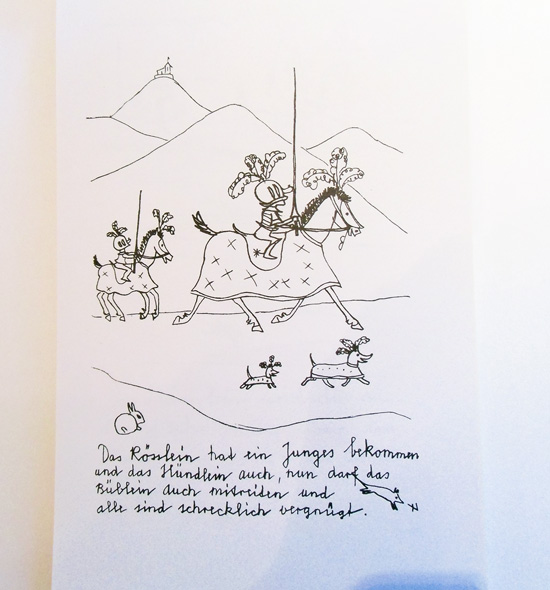 Das Rösslein hat ein Junges bekommen
und das Hündlein auch, nun darf das
Büblein auch mitreiten und
alle sind schrecklich vergnügt.